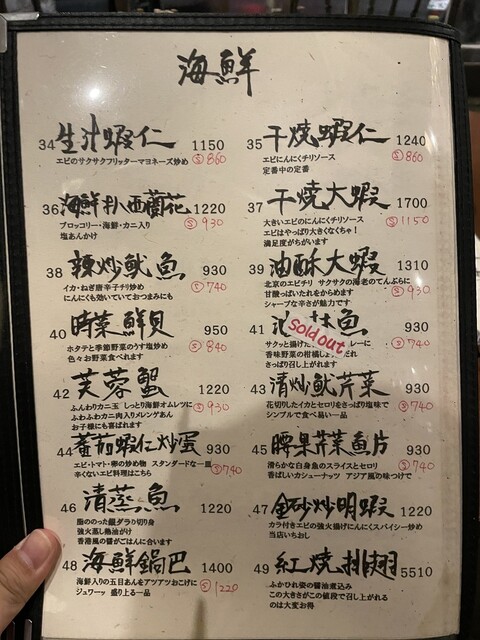 海鮮
34 生汁蝦仁 1150
エビのサクサクフリッターマヨネーズ炒め Ⓢ860
35 干燒蝦仁 1240
エビにんにくチリソース Ⓢ860
定番中の定番
36 海鮮扒西蘭花 1220
ブロッコリー・海鮮・カニ入り Ⓢ930
塩あんかけ
37 干燒大蝦 1700
大きいエビのにんにくチリソース Ⓢ1150
エビはやっぱり大きくなくちゃ！
満足度がちがいます
38 辣炒魷魚 930
イカ・ねぎ唐辛子チリ炒め Ⓢ740
にんにくも効いていておつまみにも
39 油酥大蝦 1310
北京のエビチリ サクサクの海老のてんぷらに
甘酸っぱいたれをからめます Ⓢ930
シャープな辛さが魅力です
40 時菜鮮貝 950
ホタテと季節野菜のうす塩炒め Ⓢ840
色々お野菜食べれます
41 魚 930
sold out
サクッと揚げた レーに Ⓢ740
香味野菜の柑橘しょ だれ
さっぱり召し上がれます
42 芙蓉蟹 1220
ふんわりカニ玉 しっとり海鮮オムレツに Ⓢ930
ふわふわカニ肉入りメレンゲあん
お子様にも喜ばれます
43 清炒魷芹菜 930
花切りしたイカとセロリをさっぱり塩味で Ⓢ740
シンプルで食べ易い一品
44 蕃茄蝦仁炒蛋 930
エビ・トマト・卵の炒め物 スタンダードな一皿 Ⓢ740
辛くないエビ料理はこちら
45 腰果芹菜魚片 930
清らかな白身魚のスライスとセロリ Ⓢ740
香ばしいカシューナッツ アジア風の味つけで
46 清蒸魚 1220
脂ののった銀ダラの切り身
強火蒸し熱油がけ
香港風の醤がごはんに合います
47 金砂炒明蝦 1220
カラ付きエビの強火揚げにんにくスパイシー炒め
当店いちおし
48 海鮮鍋巴 1400
海鮮入りの五目あんをアツアツおこげに Ⓢ1220
ジュワーッ 盛り上る一品
49 紅燒排翅 5510
ふかひれ姿の醤油煮込み
この大きさがこの値段で召し上がれる
のは大変お得